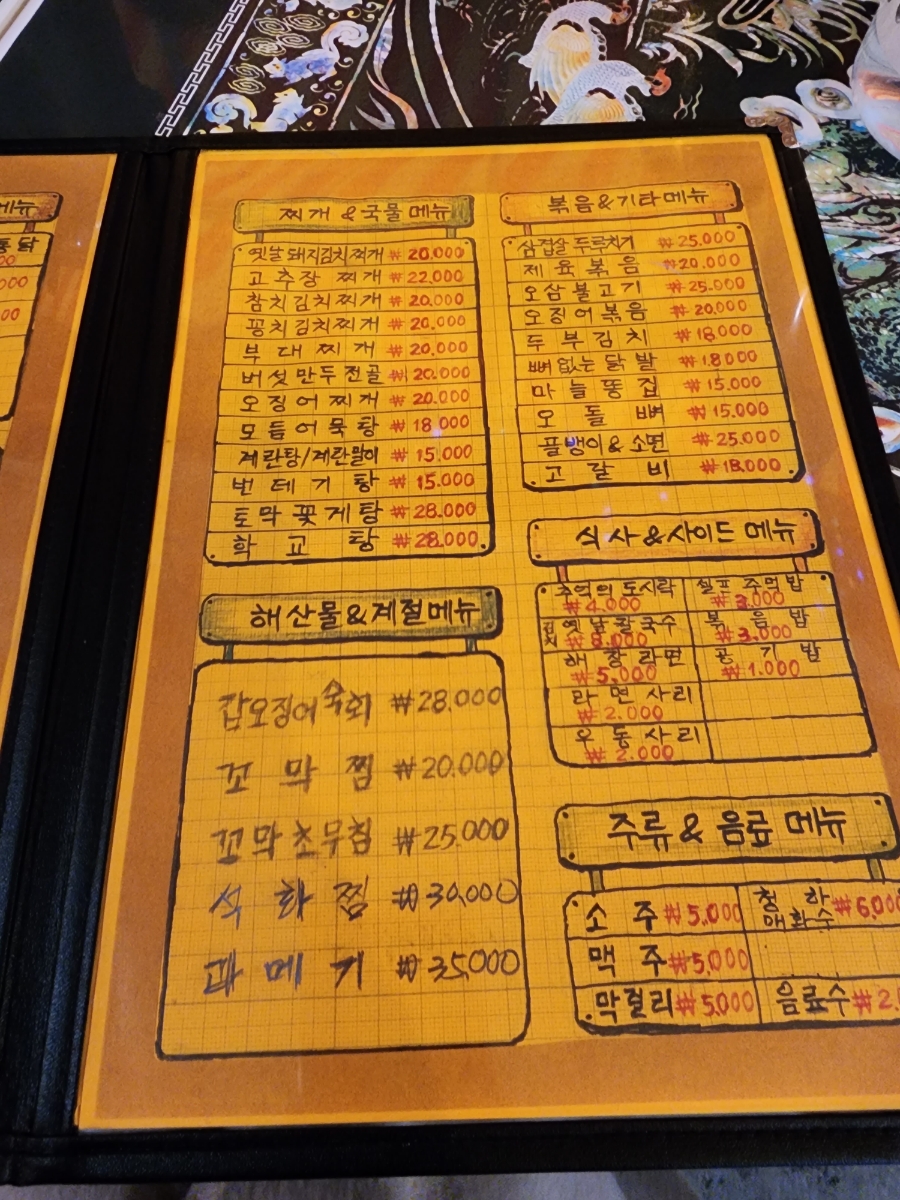 메뉴
통닭
00
000
00
찌개 & 국물 메뉴
옛날돼지김치찌개 ₩ 20.000
고추장 찌개 ₩ 22.000
참치김치찌개 ₩ 20.000
꽁치김치찌개 ₩ 20.000
부대찌개 ₩ 20.000
버섯만두전골 ₩ 20.000
오징어찌개 ₩ 20.000
모듬어묵탕 ₩ 18.000
계란탕/계란말이 ₩ 15.000
번데기탕 ₩ 15.000
토막꽃게탕 ₩ 28.000
학교탕 ₩ 28.000
해산물&계절메뉴
갑오징어숙회 ₩28.000
꼬막찜 ₩20.000
꼬막초무침 ₩25.000
석화찜 ₩30,000
과메기 ₩35,000
볶음&기타메뉴
삼겹살 두루치기 ₩25.000
제육볶음 ₩20.000
오삼불고기 ₩25.000
오징어볶음 ₩20.000
두부김치 ₩18,000
뼈없는 닭발 ₩18.000
마늘똥집 ₩15.000
오돌뼈 ₩15.000
골뱅이&소면 ₩25.000
고갈비 ₩18.000
식사&사이드 메뉴
추억의 도시락 ₩4.000
셀프 주먹밥 ₩3.000
김치 옛날칼국수 ₩8.000
볶음밥 ₩3,000
해장라면 ₩5.000
공기밥 ₩1.000
라면사리 ₩2.000
우동사리 ₩2.000
주류 & 음료 메뉴
소주 ₩5.000
청하 매화수 ₩6,000
맥주 ₩5,000
막걸리 ₩5.000
음료수 ₩2.